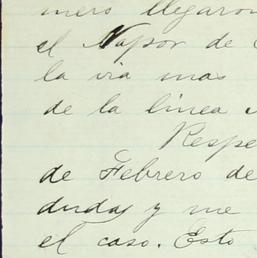 mero llegaron
el Vapor de
la via mas
de la linea
Respe
de Febrero de
dudas y me
el caso. Esto